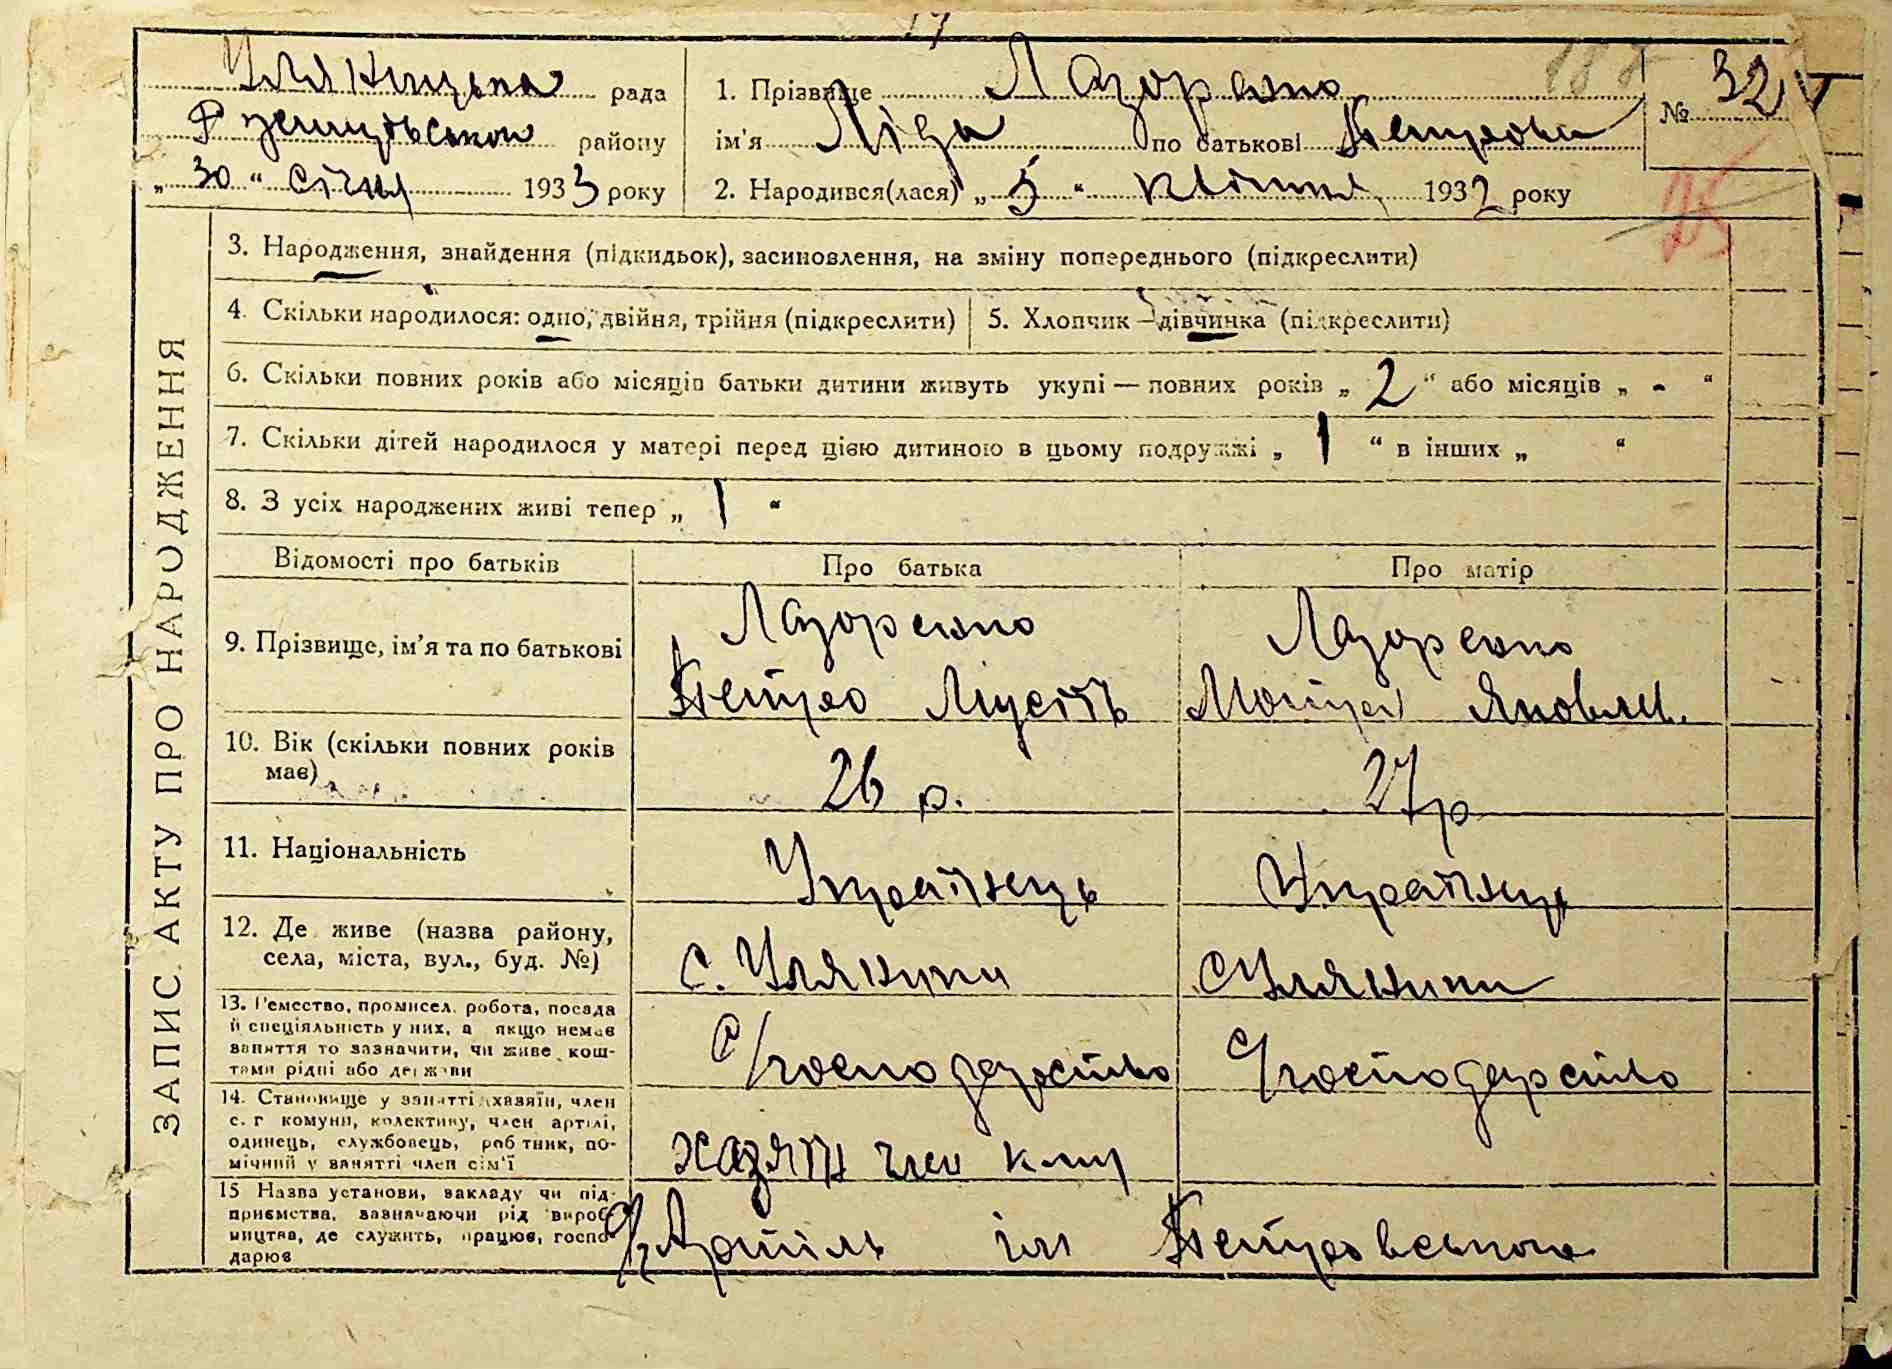 17
Уляницька рада
Ружинського району
„ 30 “ січня 1933 року
1. Прізвище Лазоренко
ім'я Ліза по батькові Петрова
2. Народився(лася) „ 5 “ квітня 1932 року
187
№ 32
25
ЗАПИС АКТУ ПРО НАРОДЖЕННЯ
3. Народження, знайдення (підкидьок), засиновлення, на зміну попереднього (підкреслити)
4. Скільки народилося: одно, двійня, трійня (підкреслити)
5. Хлопчик — дівчинка (підкреслити)
6. Скільки повних років або місяців батьки дитини живуть укупі — повних років „ 2 “ або місяців „ - “
7. Скільки дітей народилося у матері перед цією дитиною в цьому подружжі „ 1 “ в інших „ “
8. З усіх народжених живі тепер „ 1 “
Відомості про батьків
Про батька
Про матір
9. Прізвище, ім'я та по батькові
Лазоренко
Петро
Лазоренко
Мотря Яковлів.
10. Вік (скільки повних років
має)
26 р.
27 р
11. Національність
Українець
Українец
12. Де живе (назва району,
села, міста, вул., буд. №)
с. Уляники
с Уляники
13. Ремество, промисел, робота, посада
й спеціяльність у них, а якщо немає
заняття то зазначити, чи живе кош-
тами рідні або держави
С/господарство
С/господарство
14. Становище у занятті: хазяїн, член
с. г комуни, колективу, член артілі,
одинець, службовець, робітник, по-
мічний у занятті член сім'ї
хазяїн член
15 Назва установи, закладу чи під-
приємства, зазначаючи рід вироб-
ництва, де служить, працює, госпо-
дарює
Артіль ім Петровського